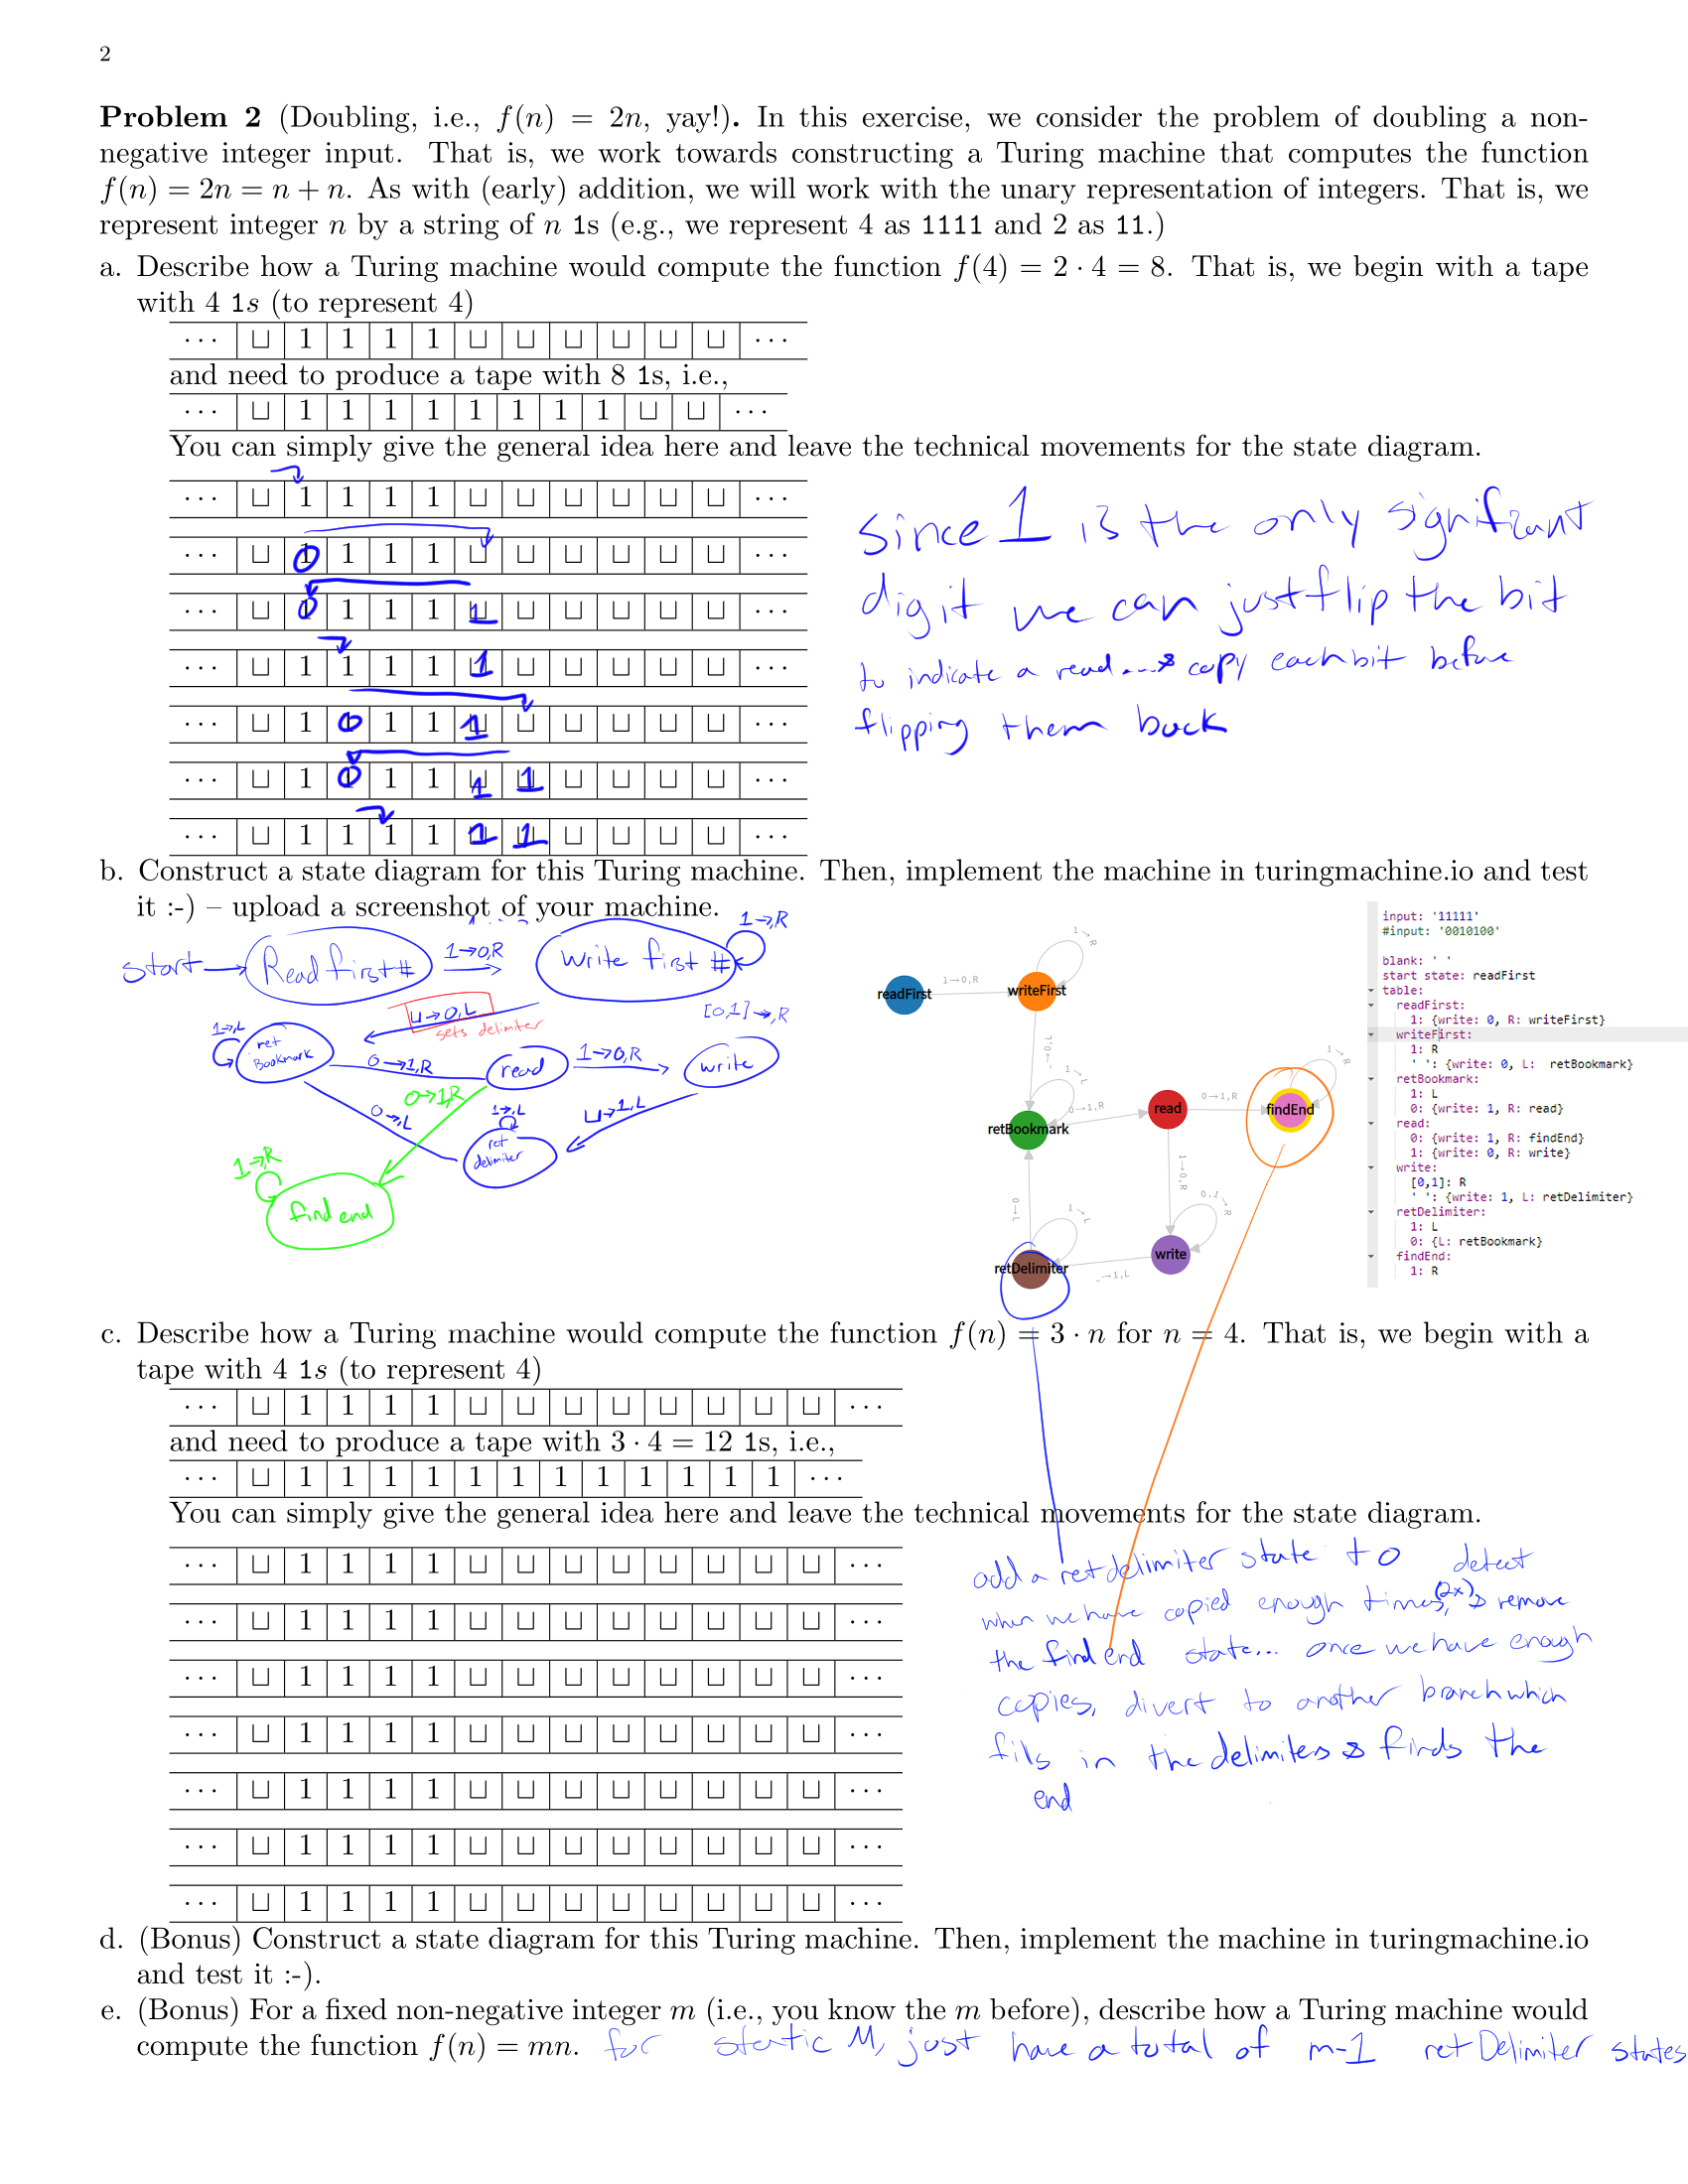 2
Problem 2 (Doubling, i.e., f(n) = 2n, yay!). In this exercise, we consider the problem of doubling a non-
negative integer input. That is, we work towards constructing a Turing machine that computes the function
f(n) = 2n = n + n. As with (early) addition, we will work with the unary representation of integers. That is, we
represent integer n by a string of n 1s (e.g., we represent 4 as 1111 and 2 as 11.)
a. Describe how a Turing machine would compute the function f(4) = 2 · 4 = 8. That is, we begin with a tape
with 4 1s (to represent 4)
··· ⊔ 1 1 1 1 ⊔ ⊔ ⊔ ⊔ ⊔ ⊔ ···
and need to produce a tape with 8 1s, i.e.,
··· ⊔ 1 1 1 1 1 1 1 1 ⊔ ⊔ ···
You can simply give the general idea here and leave the technical movements for the state diagram.
··· ⊔ 1 1 1 1 ⊔ ⊔ ⊔ ⊔ ⊔ ⊔ ···
··· ⊔ 0 1 1 1 ⊔ ⊔ ⊔ ⊔ ⊔ ⊔ ···
··· ⊔ 0 1 1 1 1 ⊔ ⊔ ⊔ ⊔ ⊔ ···
··· ⊔ 1 1 1 1 1 ⊔ ⊔ ⊔ ⊔ ⊔ ···
··· ⊔ 1 0 1 1 1 ⊔ ⊔ ⊔ ⊔ ⊔ ···
··· ⊔ 1 0 1 1 1 1 ⊔ ⊔ ⊔ ⊔ ···
··· ⊔ 1 1 1 1 1 1 ⊔ ⊔ ⊔ ⊔ ···
Since 1 is the only signifizant
digit we can just flip the bit
to indicate a read... & copy each bit before
flipping them back
b. Construct a state diagram for this Turing machine. Then, implement the machine in turingmachine.io and test
it :-) – upload a screenshot of your machine.
start → Read first # 1→0,R Write first # 1→,R
⊔→0,L
sets delimiter
[0,1]→,R
1→,L ret Bookmark 0→1,R read 1→0,R write
0→1,R
0→,L 1→,L ret delimiter ⊔→1,L
1→,R
find end
readFirst 1→0,R writeFirst 1→R
_→0,L
1→L
retBookmark 0→1,R read 0→1,R findEnd 1→R
0→L 1→L 1→0,R 0,1→R
retDelimiter _→1,L write
input: '11111'
#input: '0010100'
blank: ' '
start state: readFirst
table:
readFirst:
1: {write: 0, R: writeFirst}
writeFirst:
1: R
' ': {write: 0, L: retBookmark}
retBookmark:
1: L
0: {write: 1, R: read}
read:
0: {write: 1, R: findEnd}
1: {write: 0, R: write}
write:
[0,1]: R
' ': {write: 1, L: retDelimiter}
retDelimiter:
1: L
0: {L: retBookmark}
findEnd:
1: R
c. Describe how a Turing machine would compute the function f(n) = 3 · n for n = 4. That is, we begin with a
tape with 4 1s (to represent 4)
··· ⊔ 1 1 1 1 ⊔ ⊔ ⊔ ⊔ ⊔ ⊔ ⊔ ⊔ ···
and need to produce a tape with 3 · 4 = 12 1s, i.e.,
··· ⊔ 1 1 1 1 1 1 1 1 1 1 1 1 ···
You can simply give the general idea here and leave the technical movements for the state diagram.
··· ⊔ 1 1 1 1 ⊔ ⊔ ⊔ ⊔ ⊔ ⊔ ⊔ ⊔ ···
··· ⊔ 1 1 1 1 ⊔ ⊔ ⊔ ⊔ ⊔ ⊔ ⊔ ⊔ ···
··· ⊔ 1 1 1 1 ⊔ ⊔ ⊔ ⊔ ⊔ ⊔ ⊔ ⊔ ···
··· ⊔ 1 1 1 1 ⊔ ⊔ ⊔ ⊔ ⊔ ⊔ ⊔ ⊔ ···
··· ⊔ 1 1 1 1 ⊔ ⊔ ⊔ ⊔ ⊔ ⊔ ⊔ ⊔ ···
··· ⊔ 1 1 1 1 ⊔ ⊔ ⊔ ⊔ ⊔ ⊔ ⊔ ⊔ ···
··· ⊔ 1 1 1 1 ⊔ ⊔ ⊔ ⊔ ⊔ ⊔ ⊔ ⊔ ···
add a retdelimiter state to detect
when we have copied enough times (2x), & remove
the find end state... once we have enough
copies, divert to another branch which
fills in the delimiters & finds the
end
d. (Bonus) Construct a state diagram for this Turing machine. Then, implement the machine in turingmachine.io
and test it :-).
e. (Bonus) For a fixed non-negative integer m (i.e., you know the m before), describe how a Turing machine would
compute the function f(n) = mn. for static M, just have a total of m-1 ret Delimiter states